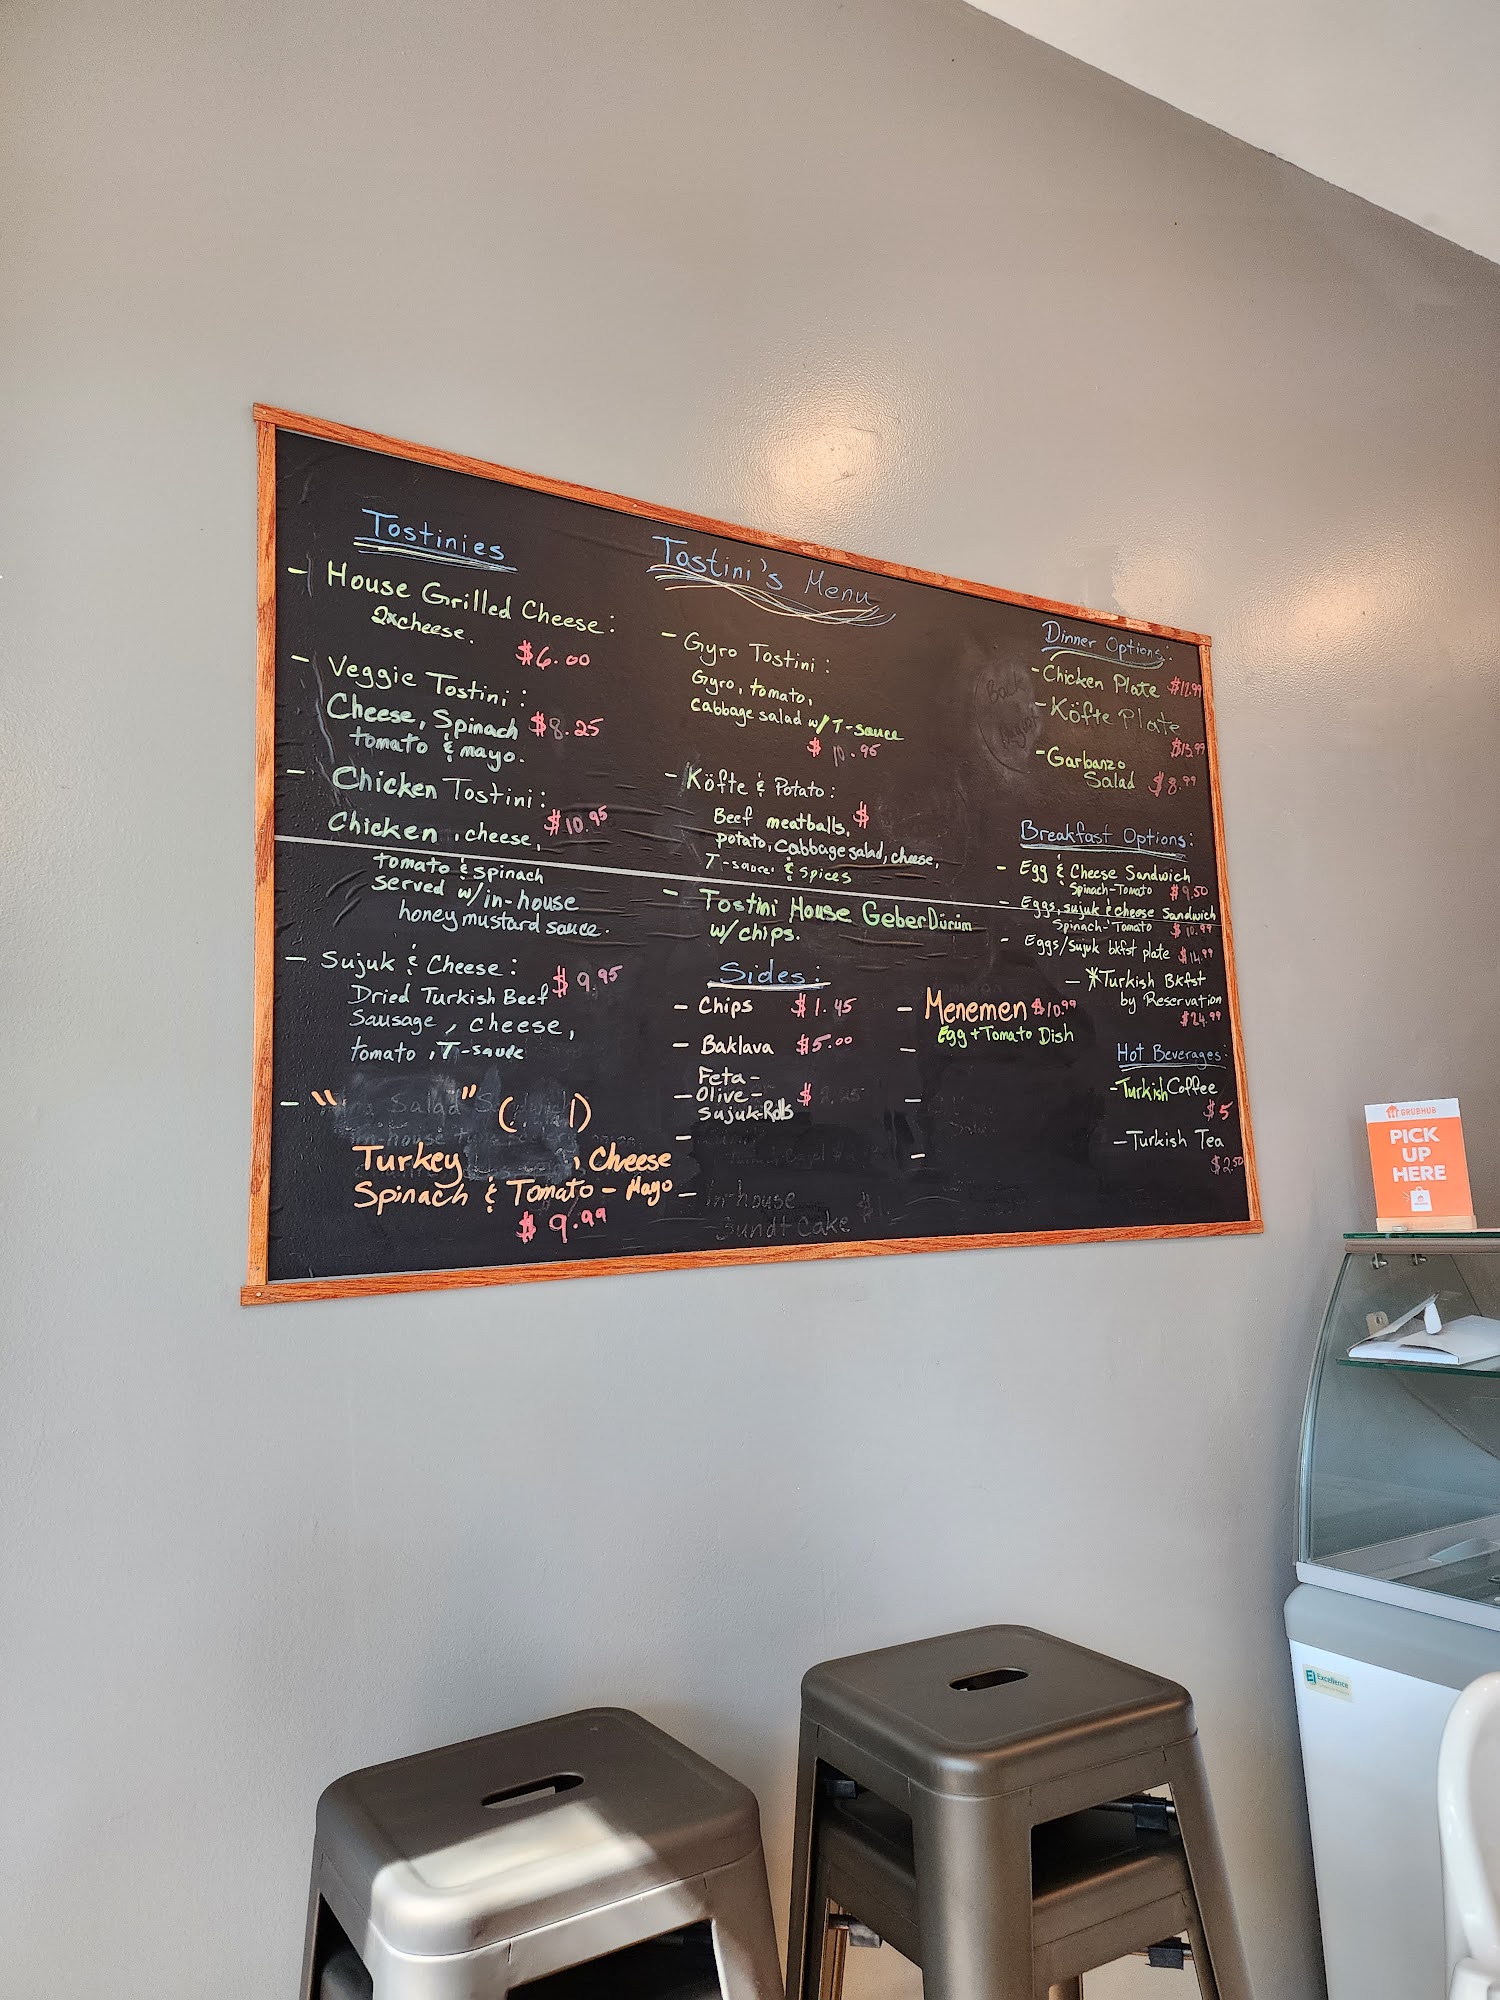 Tostinies
- House Grilled Cheese:
2xcheese.
$6.00
- Veggie Tostini:
Cheese, Spinach $8.25
tomato & mayo.
- Chicken Tostini:
Chicken, cheese, $10.95
tomato & spinach
served w/in-house
honey mustard sauce.
- Sujuk & Cheese:
Dried Turkish Beef $9.95
Sausage, cheese,
tomato, T-sauce
- " Salad"
Turkey, Cheese
Spinach & Tomato - Mayo
$9.99
Tostini's Menu
- Gyro Tostini:
Gyro, tomato,
cabbage salad w/ T-sauce
$10.95
- Köfte & Potato:
Beef meatballs, $
potato, cabbage salad, cheese,
T-sauce & spices
- Tostini House Geber Dürüm
w/ chips.
Sides:
- Chips $1.45
- Baklava $5.00
Feta -
- Olive - $
Sujuk-Rolls
- In-house
Bundt Cake
- Menemen $10.99
Egg + Tomato Dish
Dinner Options:
- Chicken Plate $12.99
- Köfte Plate
$13.99
- Garbanzo
Salad $8.99
Breakfast Options:
- Egg & Cheese Sandwich
Spinach-Tomato $9.50
- Eggs, sujuk & cheese Sandwich
Spinach-Tomato $10.99
- Eggs/Sujuk bkfst plate $14.99
- *Turkish Bkfst
by Reservation
$24.99
Hot Beverages:
- Turkish Coffee
$5
- Turkish Tea
$2.50
GRUBHUB
PICK
UP
HERE
Excellence